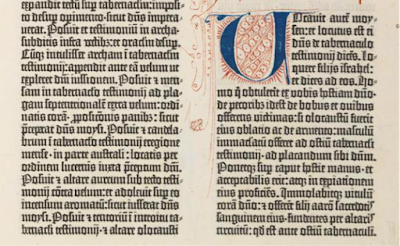 expandit tectū sup tabernaculū: impo-
sito desup opimento: sicut dūs impera-
erat. Posuit et testimoniū in archa:
subditis infra vectib; et oraclm desup.
Cūq; intulisset archam ī tabernaclm
testimonij: appendit ante eā velum ut
expleret dūi iussionem. Posuit et men-
sam in tabernaclo testimonij ad pla-
gam septentrionalē extra velum: ordi-
natis corā, ppositionis panib;: sicut
preperat dūs moysi. Posuit et candela-
brum ī tabernaclo testimonij e regione
mense, in parte australi: locatis per
ordinem lucernis iuxta preceptum dūi.
Posuit et altare aureum sub tecto testi-
monij contra velum: et adoleuit sup eo
incensum aromatū: sicut iusserat dūs
moysi. Posuit et tentoriū ī introitu ta-
bernacli testimonij: et altare holocausti
Vocauit autē moy-
sen: et locutus est ei
dūs de tabernaclo
testimonij dicēs. Lo-
quere filijs israhel:
et dices ad eos. Ho-
mo q̄ obtulerit ex vobis hostiam dño
de pecorib; idest de bobus et ouibus
offerens victimas: si holocaustū fuerit
eius oblatio ac de armento: masculū
immaculatū offeret ad ostiū tabernacli
testimonij: ad placandum sibi dūm.
Ponetq; manꝰ sup caput hostie: et
acceptabilis erit: atq; in expiationem
eius proficiēs. Immolabitq; vitulū
corā dño: et offerēt filij aarō sacerdotes
sanguinem eius: fundentes per altaris
circuitū: qd est ante ostiū tabernacli.